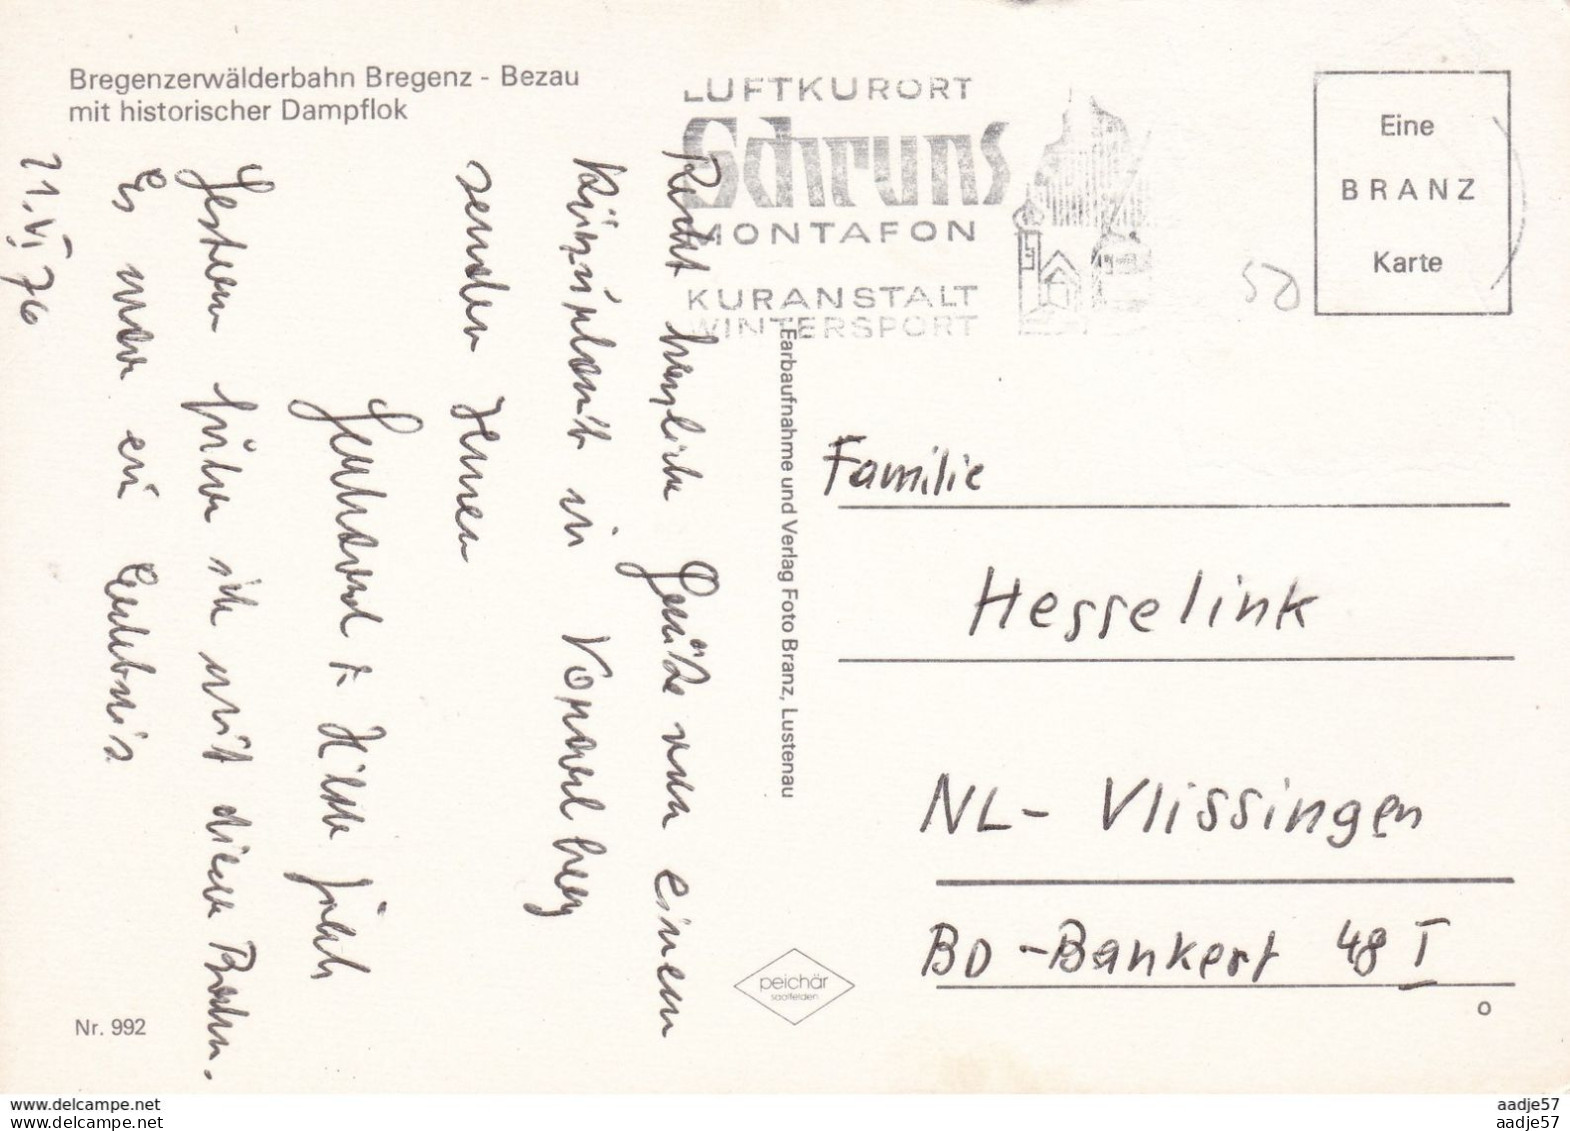 Bregenzerwälderbahn Bregenz - Bezau
mit historischer Dampflok
LUFTKURORT
Schruns
MONTAFON
KURANSTALT
WINTERSPORT
Eine
BRANZ
Karte
50
Recht herzliche Grüße von einem
Kurzurlaub in Vorarlberg
senden Ihnen
Gerhard
Gestern fuhren sie mit dieser Bahn.
Es war ein Erlebnis
21.VI 76
Farbaufnahme und Verlag Foto Branz, Lustenau
Familie
Hesselink
NL- Vlissingen
BD-Bankert 48 I
peichär
saalfelden
Nr. 992
o
www.delcampe.net
www.delcampe.net
aadje57
aadje57